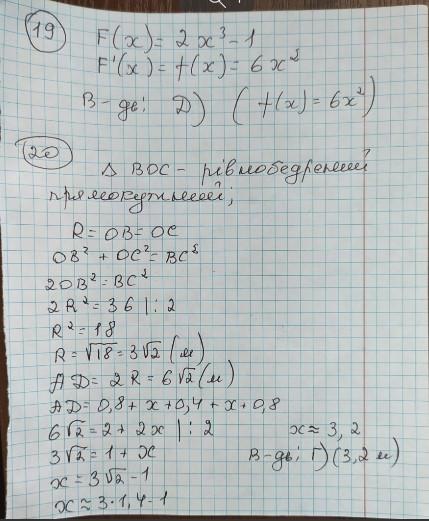 19
F(x) = 2x³ - 1
F'(x) = f(x) = 6x²
В-дь: Д) (f(x) = 6x²)
20
Δ BOC - рівнобедрений
прямокутний;
R = OB = OC
OB² + OC² = BC²
2OB² = BC²
2R² = 36 | : 2
R² = 18
R = √18 = 3√2 (м)
AD = 2R = 6√2 (м)
AD = 0,8 + x + 0,4 + x + 0,8
6√2 = 2 + 2x | : 2
3√2 = 1 + x
x = 3√2 - 1
x ≈ 3 · 1,4 - 1
x ≈ 3,2
В-дь: Г) (3,2 м)